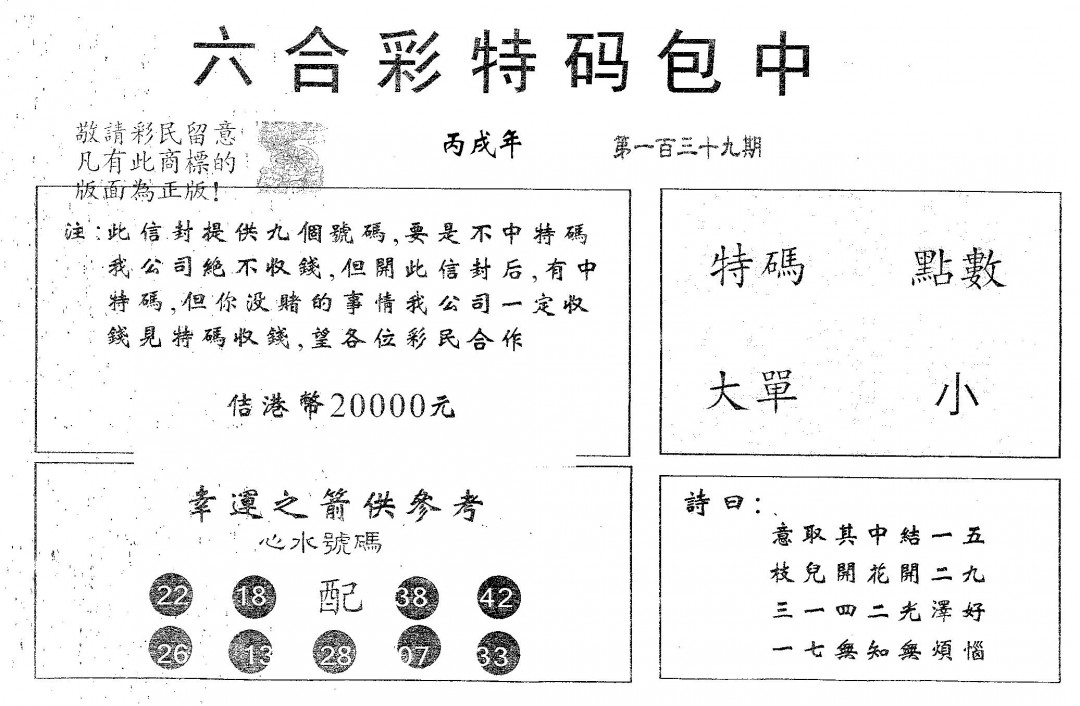 六合彩特码包中
敬請彩民留意
凡有此商標的
版面為正版!
丙戌年
第一百三十九期
注:此信封提供九個號碼,要是不中特碼
我公司絕不收錢,但開此信封后,有中
特碼,但你没賭的事情我公司一定收
錢見特碼收錢,望各位彩民合作
佶港幣20000元
特碼 點數
大單 小
幸運之箭供參考
心水號碼
22 18 配 38 42
26 13 28 07 33
詩曰:
意取其中結一五
枝兒開花開二九
三一四二光澤好
一七無知無煩惱